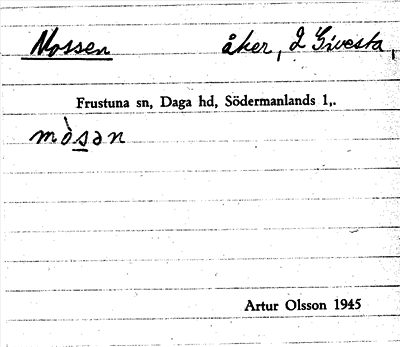 Mossen åker, 2 Givesta,
Frustuna sn, Daga hd, Södermanlands l,.
mò̀sən
Artur Olsson 1945